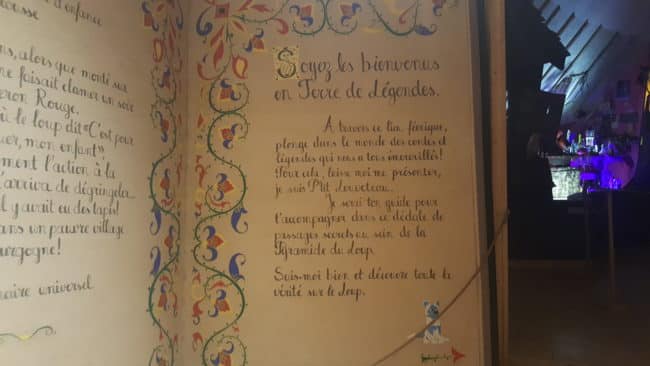 d'enfance
ousse
ns, alors que monté sur
ne faisait clamer un soir
eron Rouge.
ù le loup dit « C'est pour
uer, mon enfant »
ment l'action à la
'arriva de dégringoler
il y aurait eu des tapis!
ans un pauvre village
ourgogne!
naire universel
Soyez les bienvenus
en Terre de Légendes.
A travers ce lieu féerique,
plonge dans le monde des contes et
légendes qui nous a tous émerveillés!
Pour cela, laisse moi me présenter,
je suis P'tit Louveteau.
Je serai ton guide pour
t'accompagner dans ce dédale de
passages secrets au sein de la
Pyramide du Loup.
Suis-moi bien et découvre toute la
vérité sur le Loup.